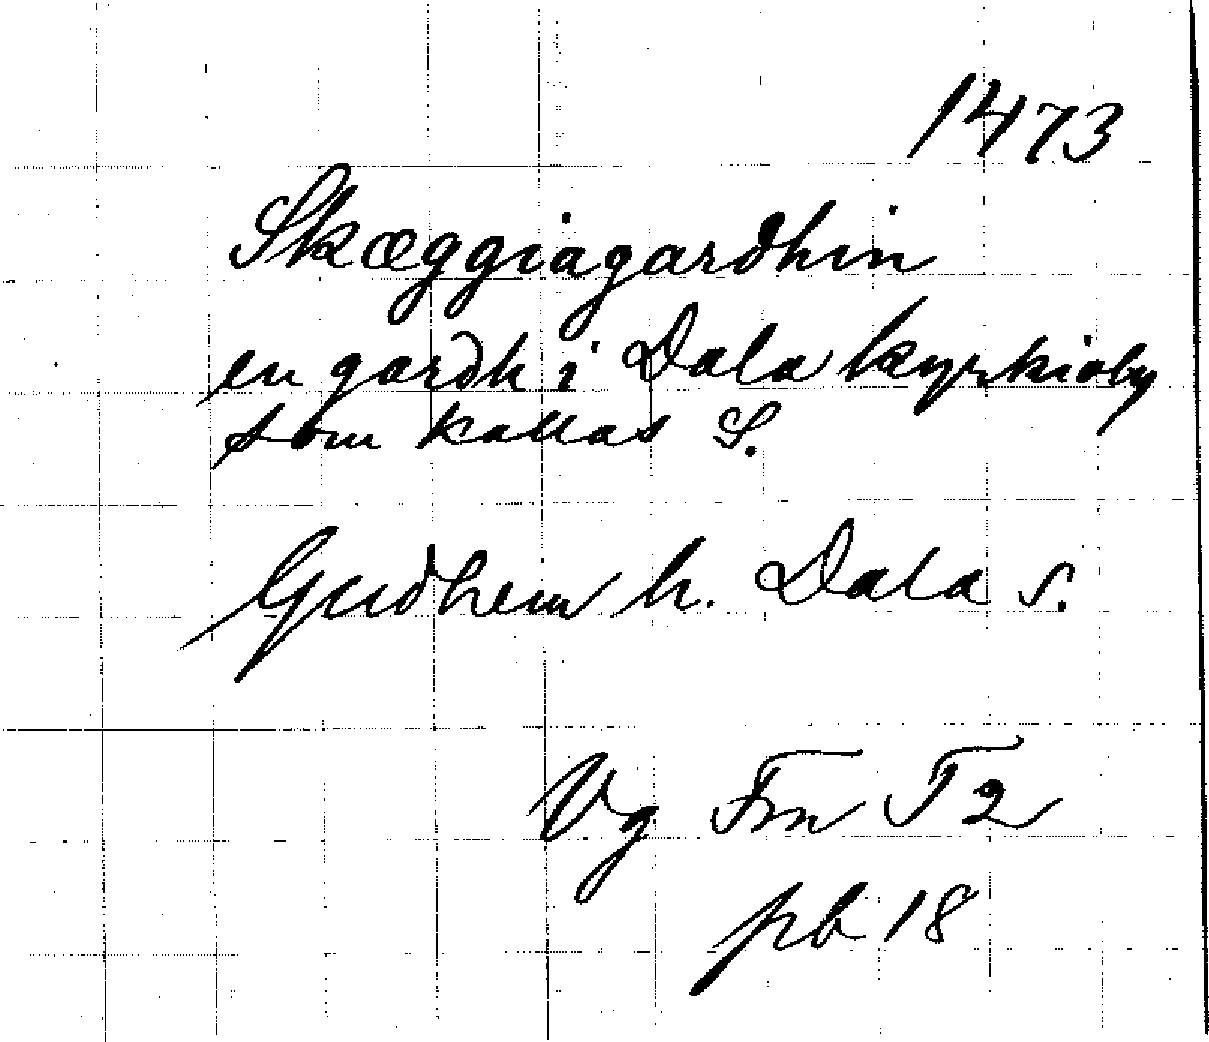 1473
Skæggiagardhin
en gardh i Dala kyrkioby
som kallas S.
Gudhem h. Dala s.
Vg Fm T 2
pb 18